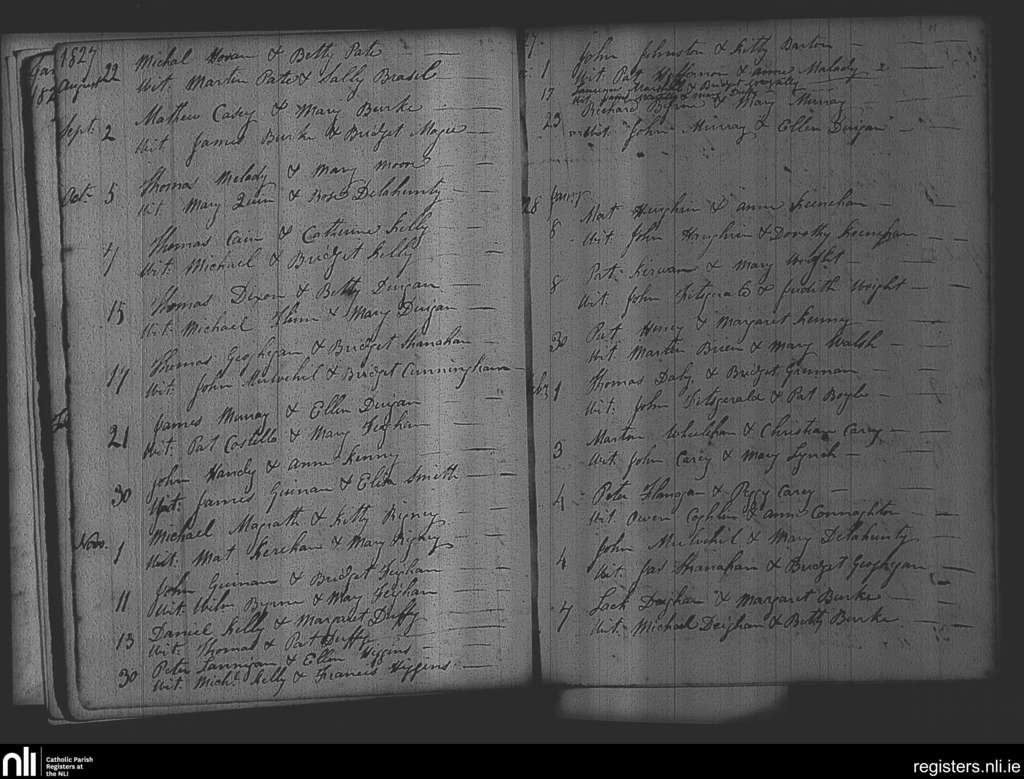 1827
August 22 Michal Horan & Betty Pate
Wit. Martin Pate & Sally Brasel
Sept. 2 Mathew Casey & Mary Burke
Wit James Burke & Bridget Magee
Oct. 5 Thomas Melady & Mary Moore
Wit. Mary Quin & Rose Delahunty
7 Thomas Cain & Catherine Kelly
Wit. Michael & Bridget Kelly
15 Thomas Dixon & Betty Duigan
Wit. Michael Flinn & Mary Duigan
17 Thomas Geoghgan & Bridget Shanahan
Wit. John Mulvehil & Bridget Cunningham
21 James Murray & Ellen Duigan
Wit. Pat Costello & Mary Feighan
30 John Handy & Anne Kenny
Wit. James Guinan & Eliza Smith
Novr. 1 Michael Magrath & Kitty Rigney
Wit. Mat Kerehan & Mary Rigney
11 John Guinan & Bridget Feighan
Wit. Wilm Byrne & Mary Feighan
13 Daniel Kelly & Margaret Duffy
Wit. Thomas & Pat Duffy
30 Peter Lannigan & Ellen Higgins
Wit. Michl. Kelly & Francis Higgens
1 John Johnston & Kitty Barton
Wit. Pat Heffernon & Anne Malady
17 Marshall & Bridget
23 Richard Byrne & Mary Murray
Wit. John Murray & Ellen Duigan
28 Jany
8 Mat Heughrin & Anne Keenehan
Wit. John Heughrin & Dorothy Keenehan
8 Pat. Kirwan & Mary Wright
Wit. John Fitzgerald & Judith Wright
30 Pat Henry & Margaret Kenny
Wit Martin Brien & Mary Walsh
1 Thomas Daly & Bridget Grennan
Wit. John Fitzgerald & Pat Boyle
3 Martin Wheelehan & Christian Carey
Wit John Carey & Mary Lynch
4 Peter Flanagan & Peggy Carey
Wit. Owen Coghlin & Ann Connaghton
4 John Mulvehil & Mary Delahunty
Wit. Jas Shanahan & Bridget Geoghgan
7 Lack Deighan & Margaret Burke
Wit. Michael Deighan & Betty Burke
nli
Catholic Parish
Registers at
the NLI
registers.nli.ie